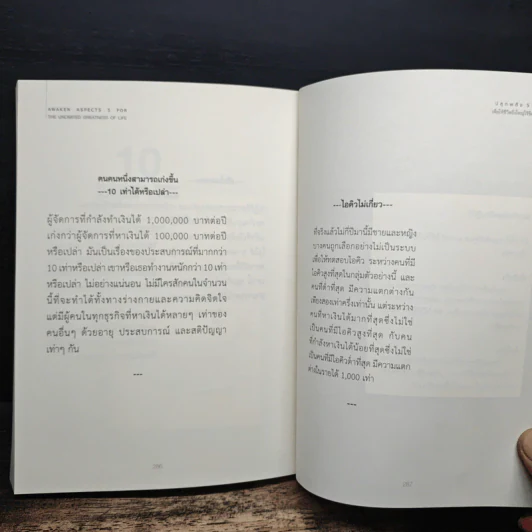 AWAKEN ASPECTS 5 FOR
THE UNLIMITED GREATNESS OF LIFE
10
คนคนหนึ่งสามารถเก่งขึ้น
---10 เท่าได้หรือเปล่า---
ผู้จัดการที่กำลังทำเงินได้ 1,000,000 บาทต่อปี
เก่งกว่าผู้จัดการที่หาเงินได้ 100,000 บาทต่อปี
หรือเปล่า มันเป็นเรื่องของประสบการณ์ที่มากกว่า
10 เท่าหรือเปล่า เขาหรือเธอทำงานหนักกว่า 10 เท่า
หรือเปล่า ไม่อย่างแน่นอน ไม่มีใครสักคนในจำนวน
นี้ที่จะทำได้ทั้งทางร่างกายและความคิดจิตใจ
แต่มีผู้คนในทุกธุรกิจที่หาเงินได้หลายๆ เท่าของ
คนอื่นๆ ด้วยอายุ ประสบการณ์ และสติปัญญา
เท่าๆ กัน
---
ปลุกพลัง 5
---ไอคิวไม่เกี่ยว---
ที่จริงแล้วไม่กี่ปีมานี้มีชายและหญิง
บางคนถูกเลือกอย่างไม่เป็นระบบ
เพื่อให้ทดสอบไอคิว ระหว่างคนที่มี
ไอคิวสูงที่สุดในกลุ่มตัวอย่างนี้ และ
คนที่ต่ำที่สุด มีความแตกต่างกัน
เพียงสองเท่าครึ่งเท่านั้น แต่ระหว่าง
คนที่หาเงินได้มากที่สุดซึ่งไม่ใช่
เป็นคนที่มีไอคิวสูงที่สุด กับคน
ที่กำลังหาเงินได้น้อยที่สุดซึ่งไม่ใช่
เป็นคนที่มีไอคิวต่ำที่สุด มีความแตก
ต่างในรายได้ 1,000 เท่า
---